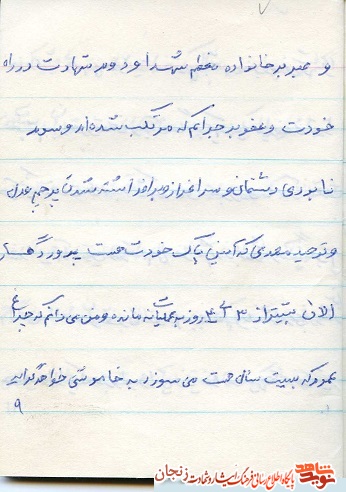 و صبر بر خانواده معظم شهدا و در شهادت در راه
خودت و عفو بر جرائم که مرتکب شده‌ام و سبب
نابودی دشمنان و سرافراز و برافراشته شدن پرچم عدل
و توحید مهدی که آئین پاک خودت هست پروردگارا
الان بیشتر از ۳ الی ۴ روز به عملیات نمانده و من می‌دانم که چراغ
عمرم که بیست سال هست می سوزد به خاموشی خواهد گرائید
۹
نوید شاهد پایگاه اطلاع رسانی فرهنگ ایثار و شهادت زنجان